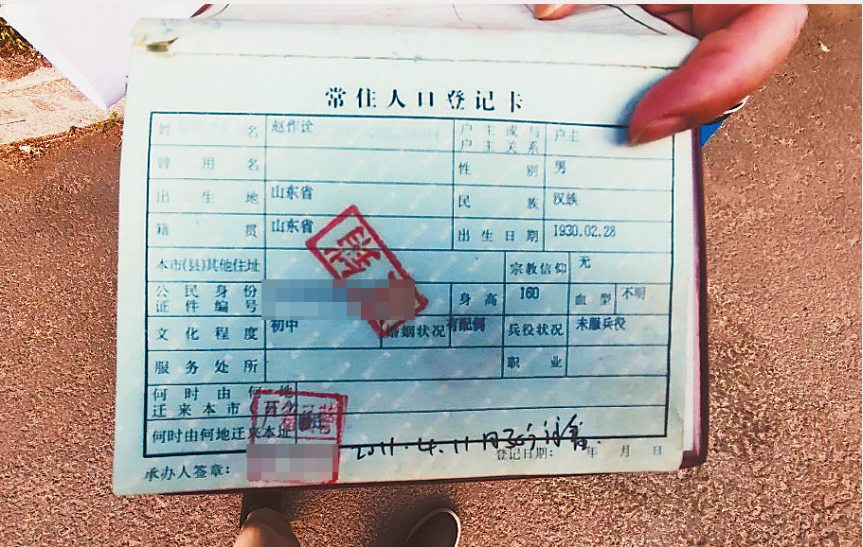 常住人口登记卡
姓名 赵作诠 户主或与户主关系 户主
曾用名 性别 男
出生地 山东省 民族 汉族
籍贯 山东省 出生日期 1930.02.28
本市(县)其他住址 宗教信仰 无
公民身份证件编号 身高 160 血型 不明
文化程度 初中 婚姻状况 有配偶 兵役状况 未服兵役
服务处所 职业
何时由何地迁来本市(
何时由何地迁来本址
2011.4.11
承办人签章: 登记日期: 年 月 日